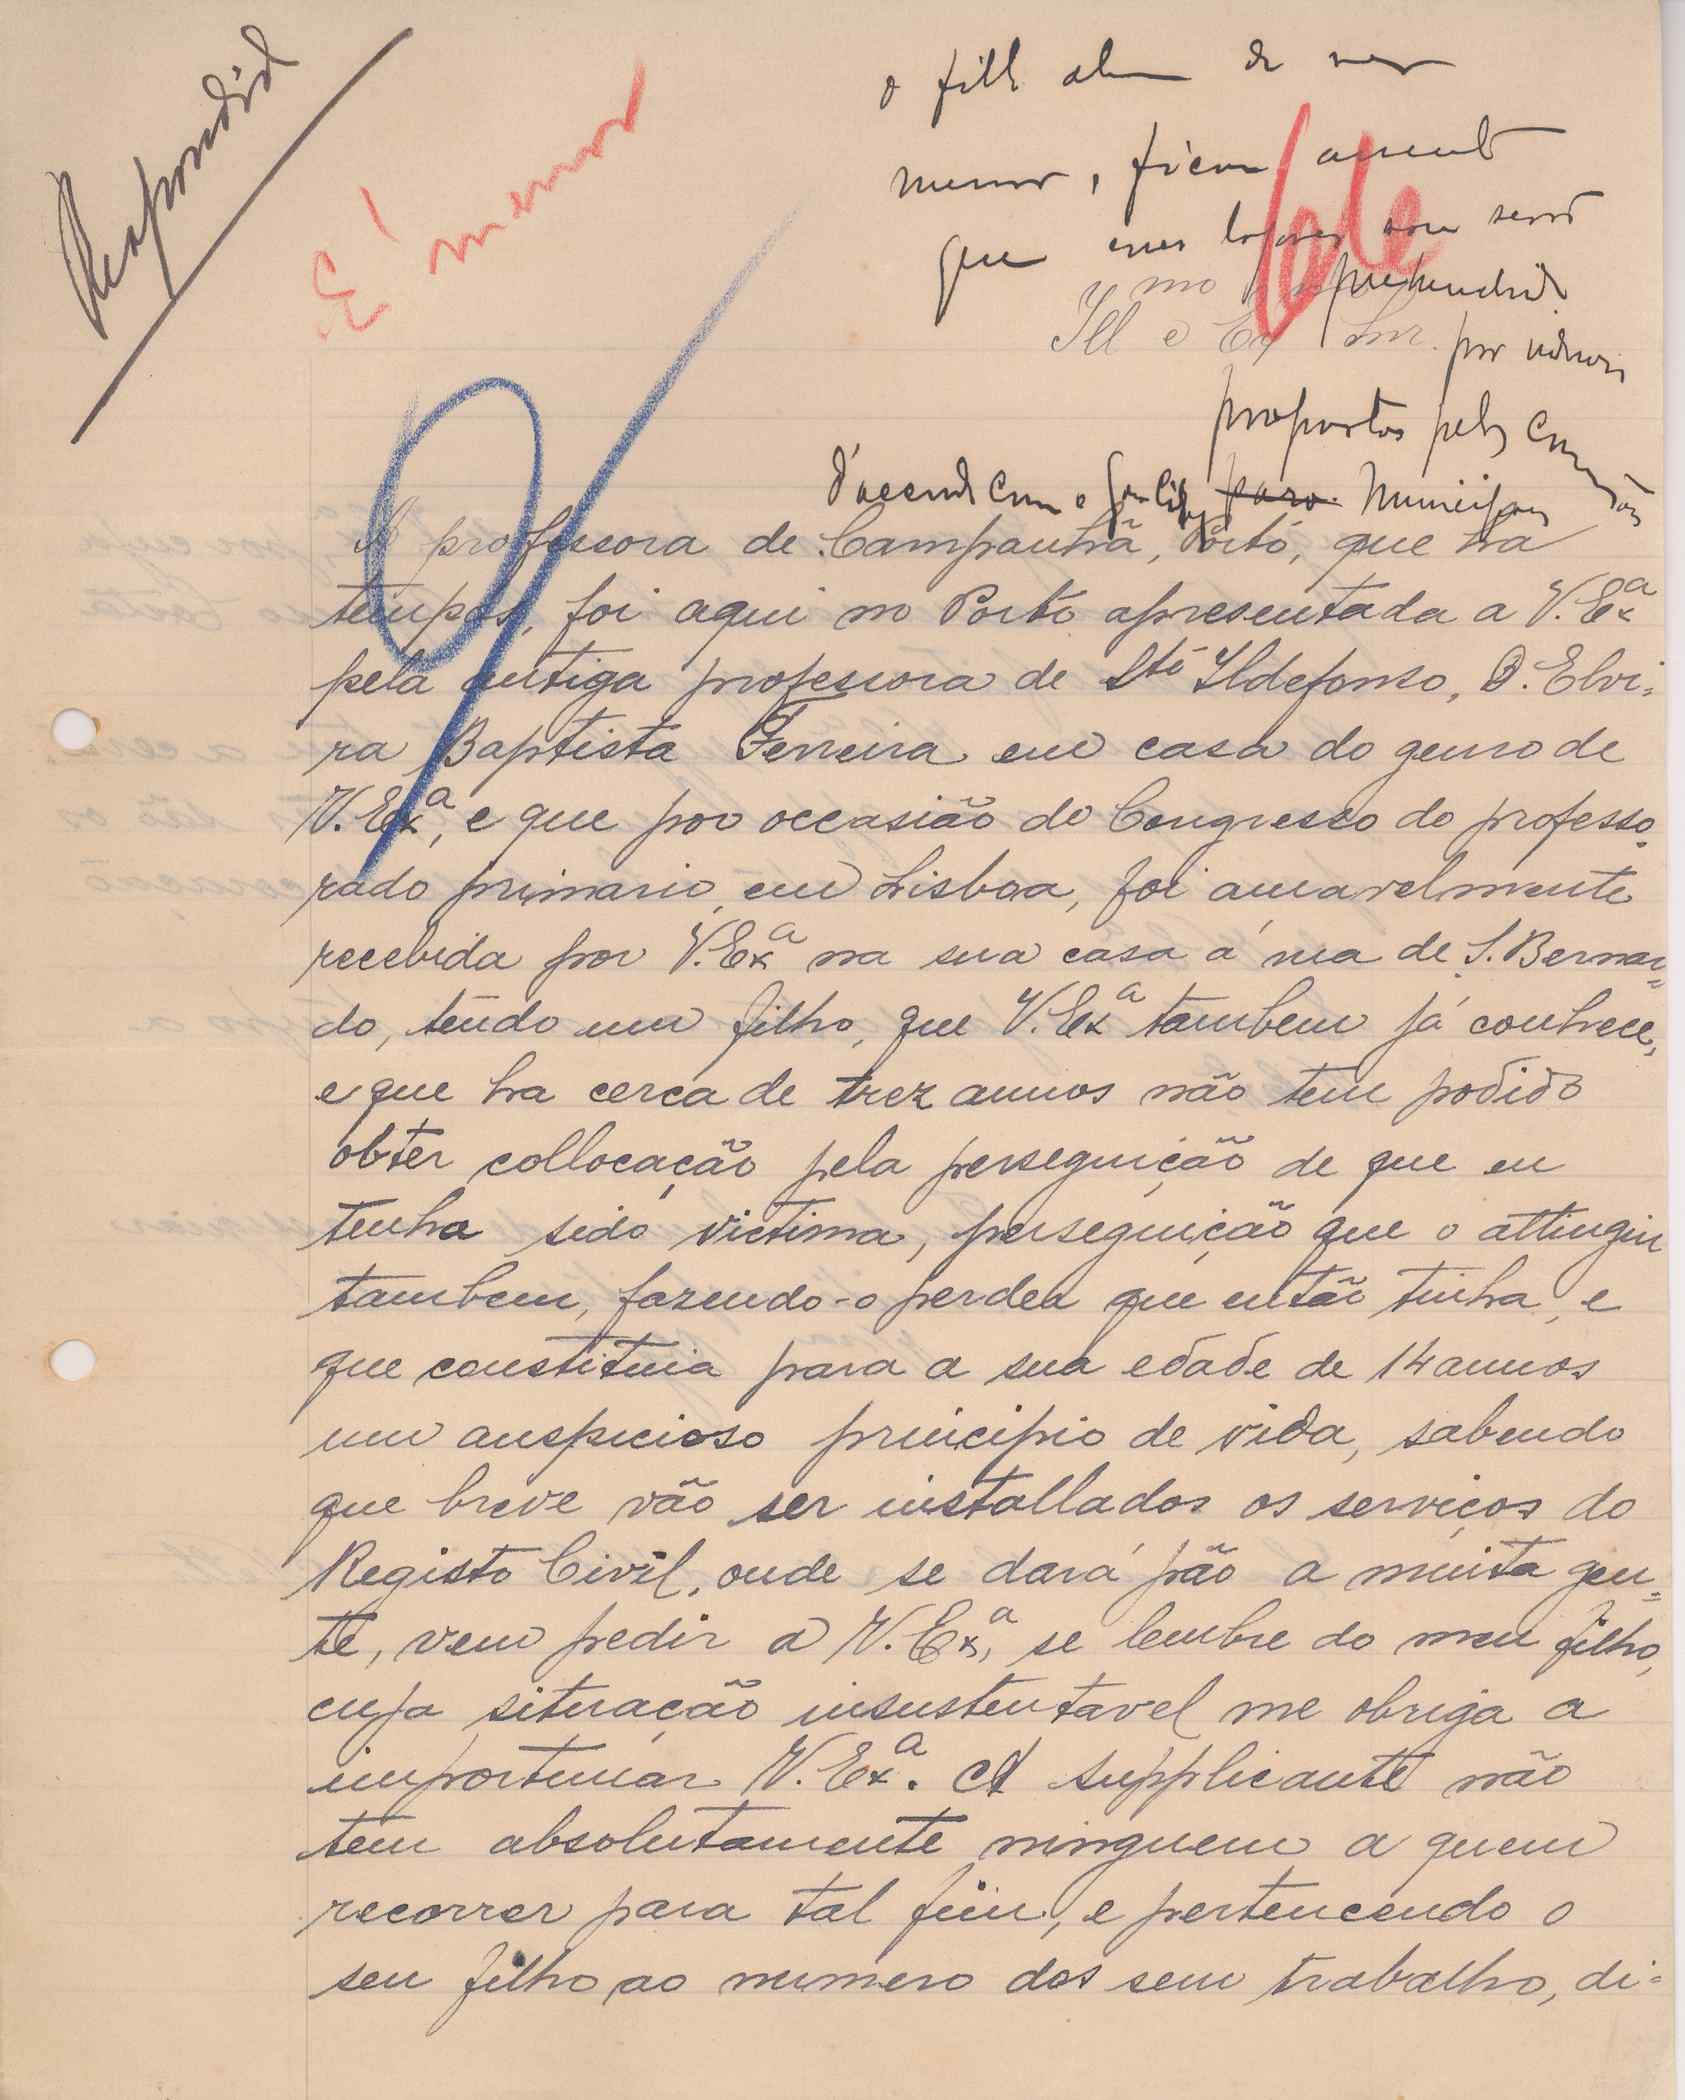 Respondido
É menor
o filho alem de ser
menor, ficou assente
que esses logares não serão
prehenchidos
por
propostos pelas Commissões
d'accordo com o para Municipaes
Ill.mo e Ex.mo Snr.
A professora de Campanhã, Porto, que ha
tempos, foi aqui no Porto apresentada a V. Exª
pela antiga professora de Stº Ildefonso, D. Elvi-
ra Baptista Ferreira em casa do genro de
V. Exª, e que por occasião do Congresso do professo-
rado primario, em Lisboa, foi amavelmente
recebida por V. Exª na sua casa á rua de S. Bernar-
do, tendo um filho, que V. Exª tambem já conhece,
e que ha cerca de trez annos não tem podido
obter collocação pela perseguição de que eu
tenha sido victima, perseguição que o attingiu
tambem, fazendo-o perder a que então tinha, e
que constituia para a sua edade de 14 annos
um auspicioso principio de vida, sabendo
que breve vão ser installados os serviços do
Registo Civil, onde se dará pão a muita gen-
te, vem pedir a V. Exª, se lembre do meu filho,
cuja situação insustentavel me obriga a
importunar V. Exª. A supplicante não
tem absolutamente ninguem a quem
recorrer para tal fim, e pertencendo o
seu filho ao numero dos sem trabalho, di-